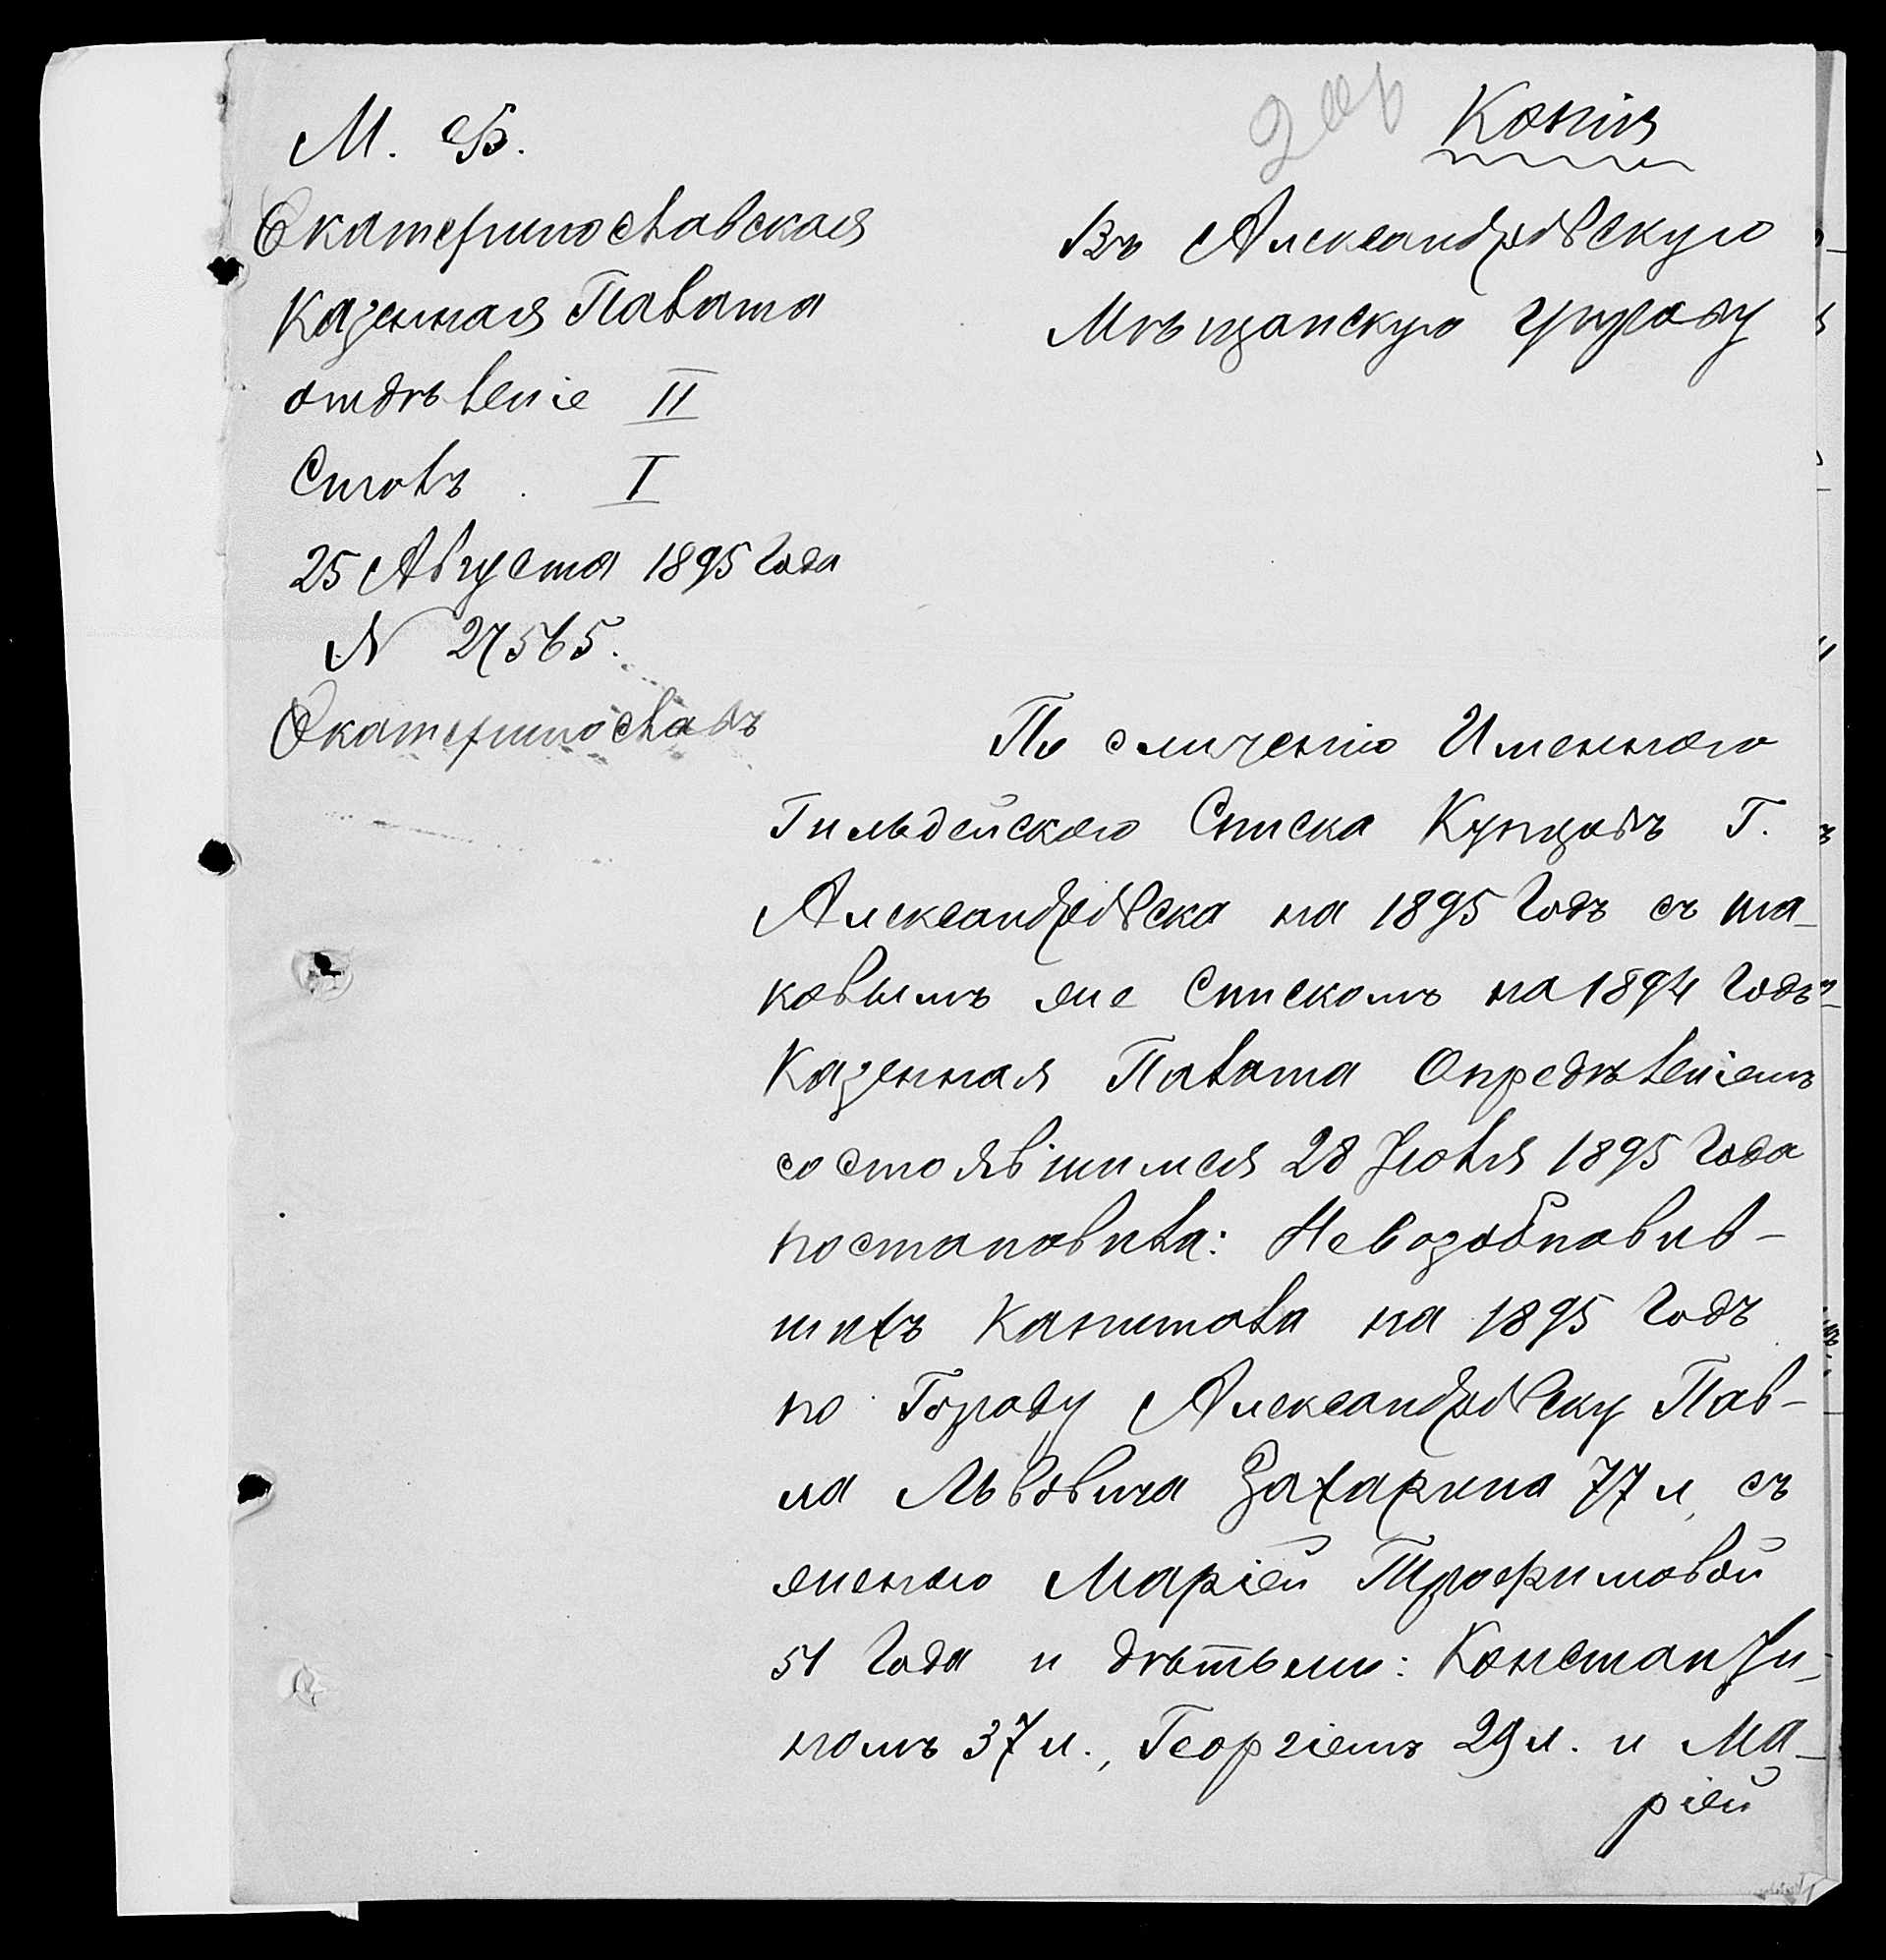 Копія
М. Ф.
Екатеринославская
Казенная Палата
отдѣленіе II
Столъ. I
25 Августа 1895 Года
N 27565.
Екатеринославъ
Въ Александровскую
Мѣщанскую Управу
По сличенію Именного
Гильдейского Списка Купцовъ Г.
Александровска на 1895 Годъ съ та-
ковымъ же Спискомъ на 1894 Годъ
Казенная Палата Опредѣленіемъ
состоявшимся 28 Іюля 1895 Года
постановила: Невозобновив-
шихъ Капитала на 1895 Годъ
по Городу Александровску Пав-
ла Львовича Захарина 77 л. съ
женою Маріей Трофимовой
51 Года и дѣтьми: Константи-
номъ 37 л., Георгіемъ 29 л. и Ма-
ріей